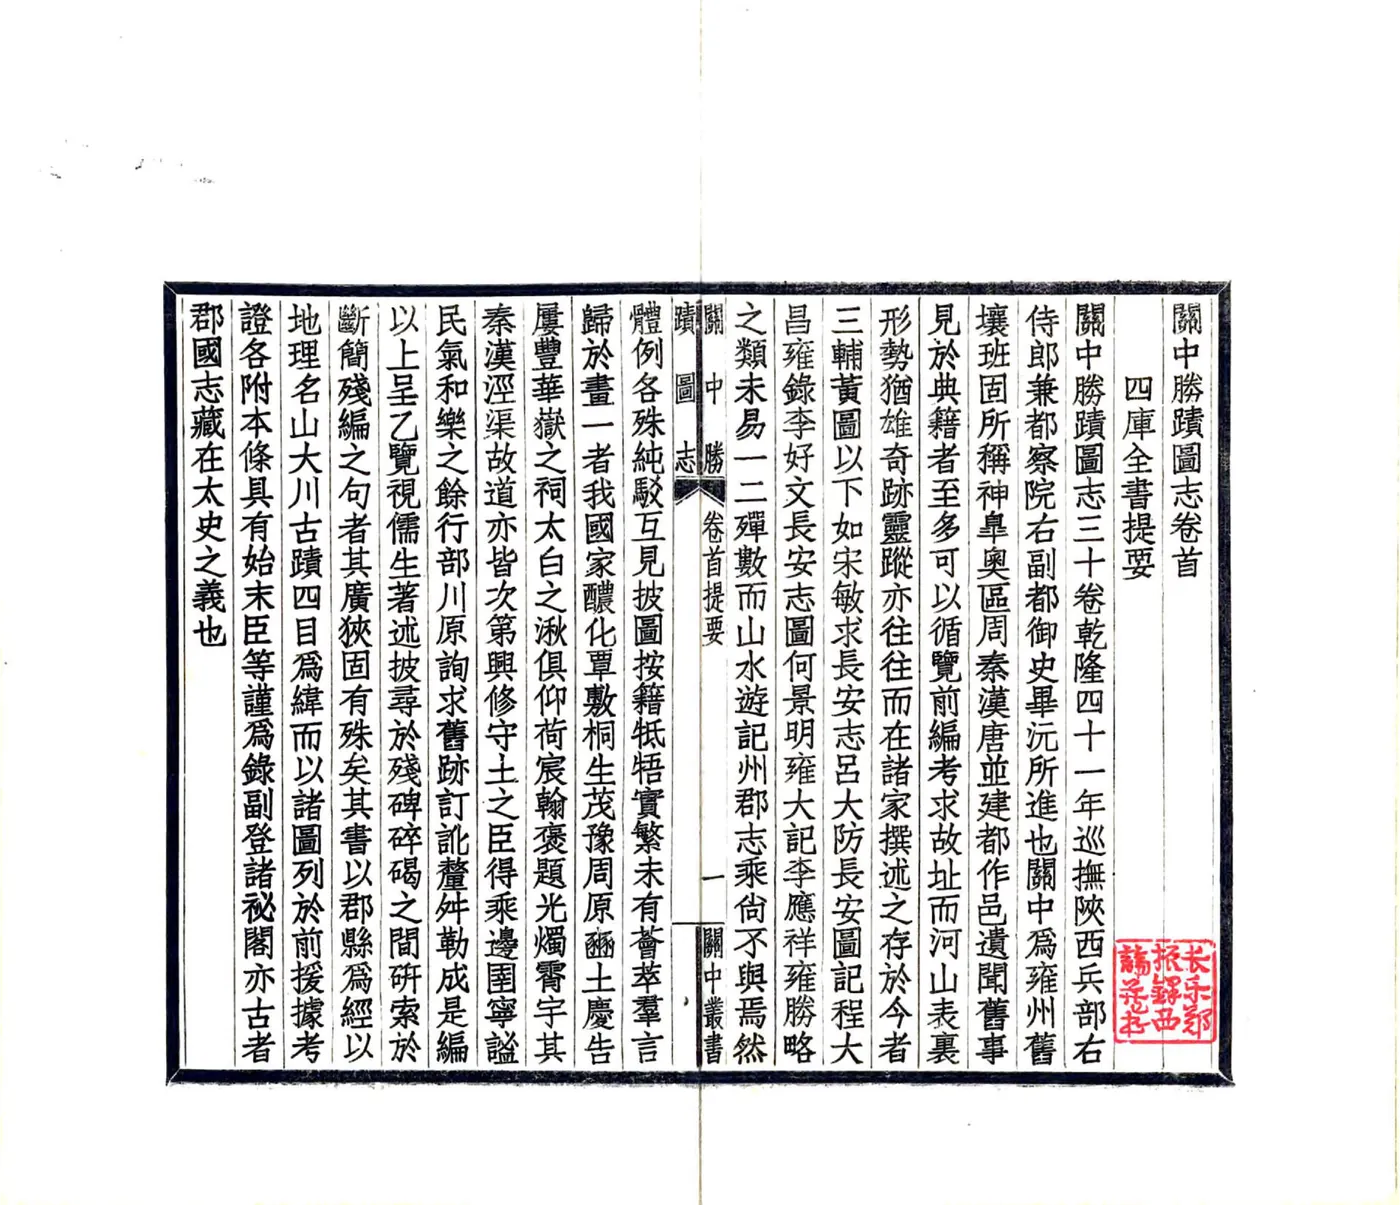 關中勝蹟圖志卷首
四庫全書提要
關中勝蹟圖志三十卷乾隆四十一年巡撫陝西兵部右
侍郎兼都察院右副都御史畢沅所進也關中爲雍州舊
壤班固所稱神臯奧區周秦漢唐並建都作邑遺聞舊事
見於典籍者至多可以循覽前編考求故址而河山表裏
形勢猶雄奇跡靈蹤亦往往而在諸家撰述之存於今者
三輔黃圖以下如宋敏求長安志呂大防長安圖記程大
昌雍錄李好文長安志圖何景明雍大記李應祥雍勝略
之類未易一二殫數而山水遊記州郡志乘尙不與焉然
關中勝
蹟圖志
卷首提要
一
關中叢書
體例各殊純駁互見披圖按籍牴牾實繁未有薈萃羣言
歸於畫一者我國家醲化覃敷桐生茂豫周原豳土慶告
屢豐華嶽之祠太白之湫俱仰荷宸翰褒題光燭霄宇其
秦漢涇渠故道亦皆次第興修守土之臣得乘邊圉寧謐
民氣和樂之餘行部川原詢求舊跡訂訛釐舛勒成是編
以上呈乙覽視儒生著述披尋於殘碑碎碣之間硏索於
斷簡殘編之句者其廣狹固有殊矣其書以郡縣爲經以
地理名山大川古蹟四目爲緯而以諸圖列於前援據考
證各附本條具有始末臣等謹爲錄副登諸祕閣亦古者
郡國志藏在太史之義也
長樂鄭
振鐸西
諦藏書